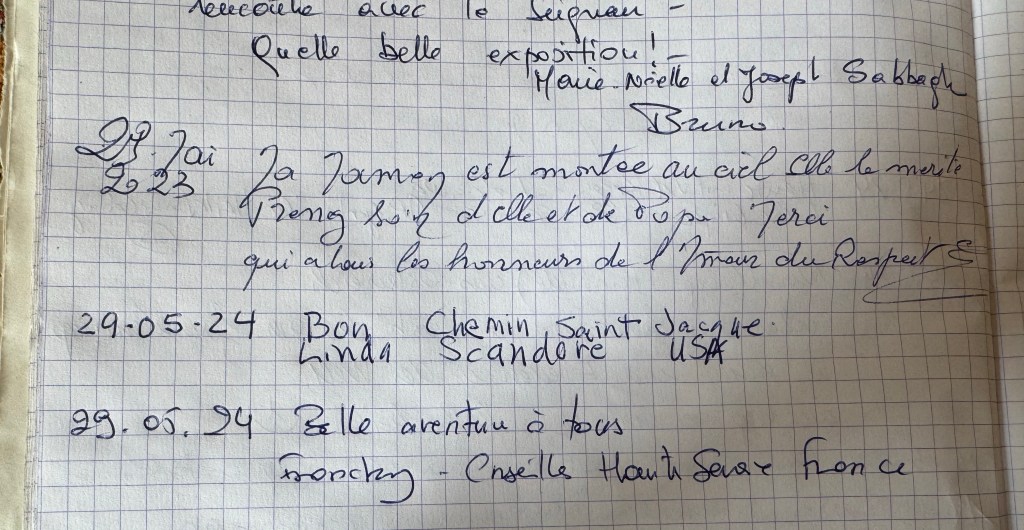 avec le Seigneur -
Quelle belle exposition! -
Marie-Noëlle et Joseph Sabbagh
Bruno
29. Mai
2023
Ma Maman est montée au ciel elle le mérite
Preng soin d elle et de Papa Merci
qui a tous les honneurs de l Amour du Respect
29-05-24 Bon Chemin Saint Jacque.
Linda Scandore USA
29.05.24 Belle aventure à tous
Francky - Haute Savoie France